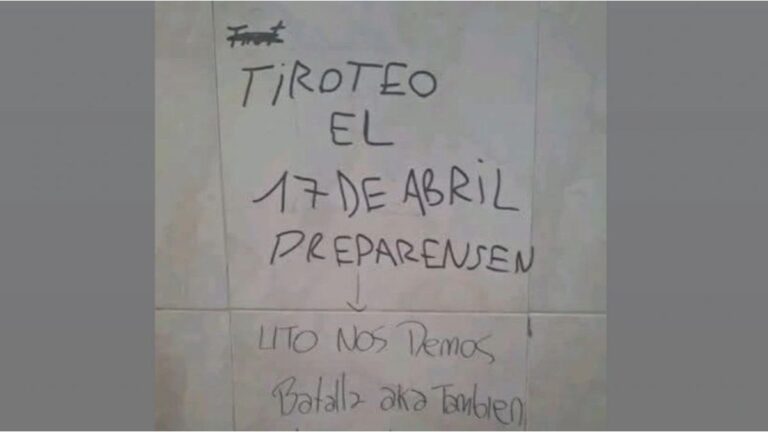 TIROTEO
EL
17 DE ABRIL
PREPARENSEN
LITO NOS Demos
Batalla aka Tambien